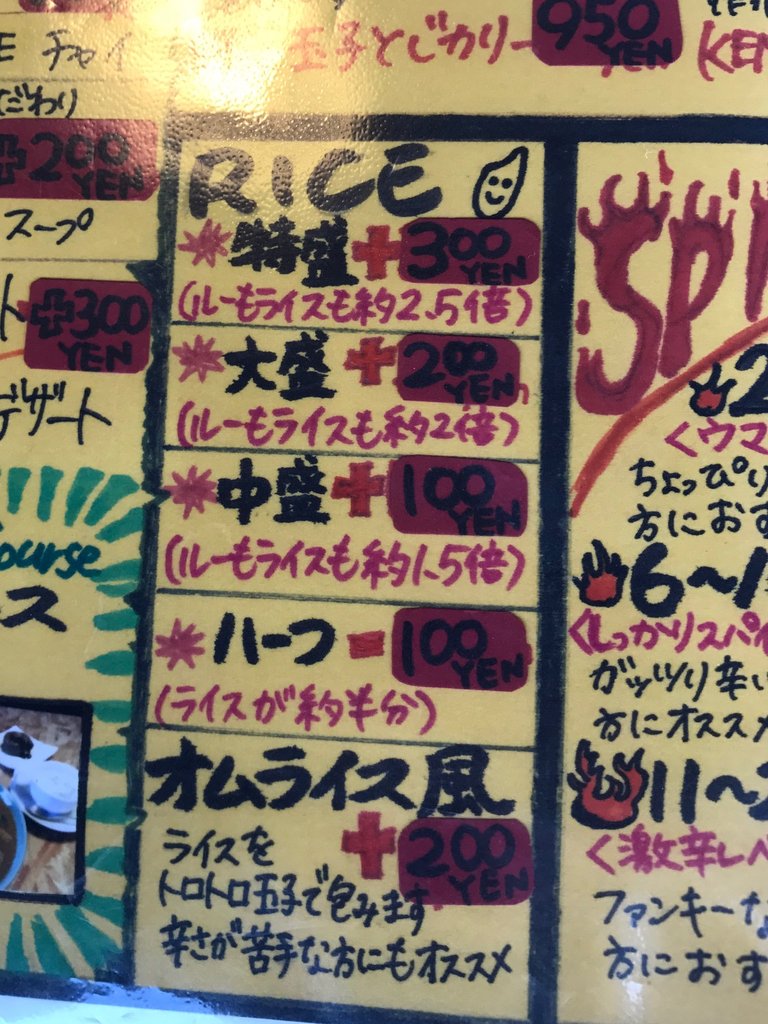 チャイ
玉子とじカリー 950 YEN
だわり
+200 YEN
スープ
+300 YEN
デザート
ourse
RICE
特盛 +300 YEN
(ルーもライスも約2.5倍)
大盛 +200 YEN
(ルーもライスも約2倍)
中盛 +100 YEN
(ルーもライスも約1.5倍)
ハーフ -100 YEN
(ライスが約半分)
オムライス風
+200 YEN
ライスを
トロトロ玉子で包みます
辛さが苦手な方にもオススメ
SP
2
<ウマ
ちょっぴり
方におす
6~1
<しっかりスパイ
ガッツリ辛い
方にオススメ
11~2
<激辛レベ
ファンキーな
方におす